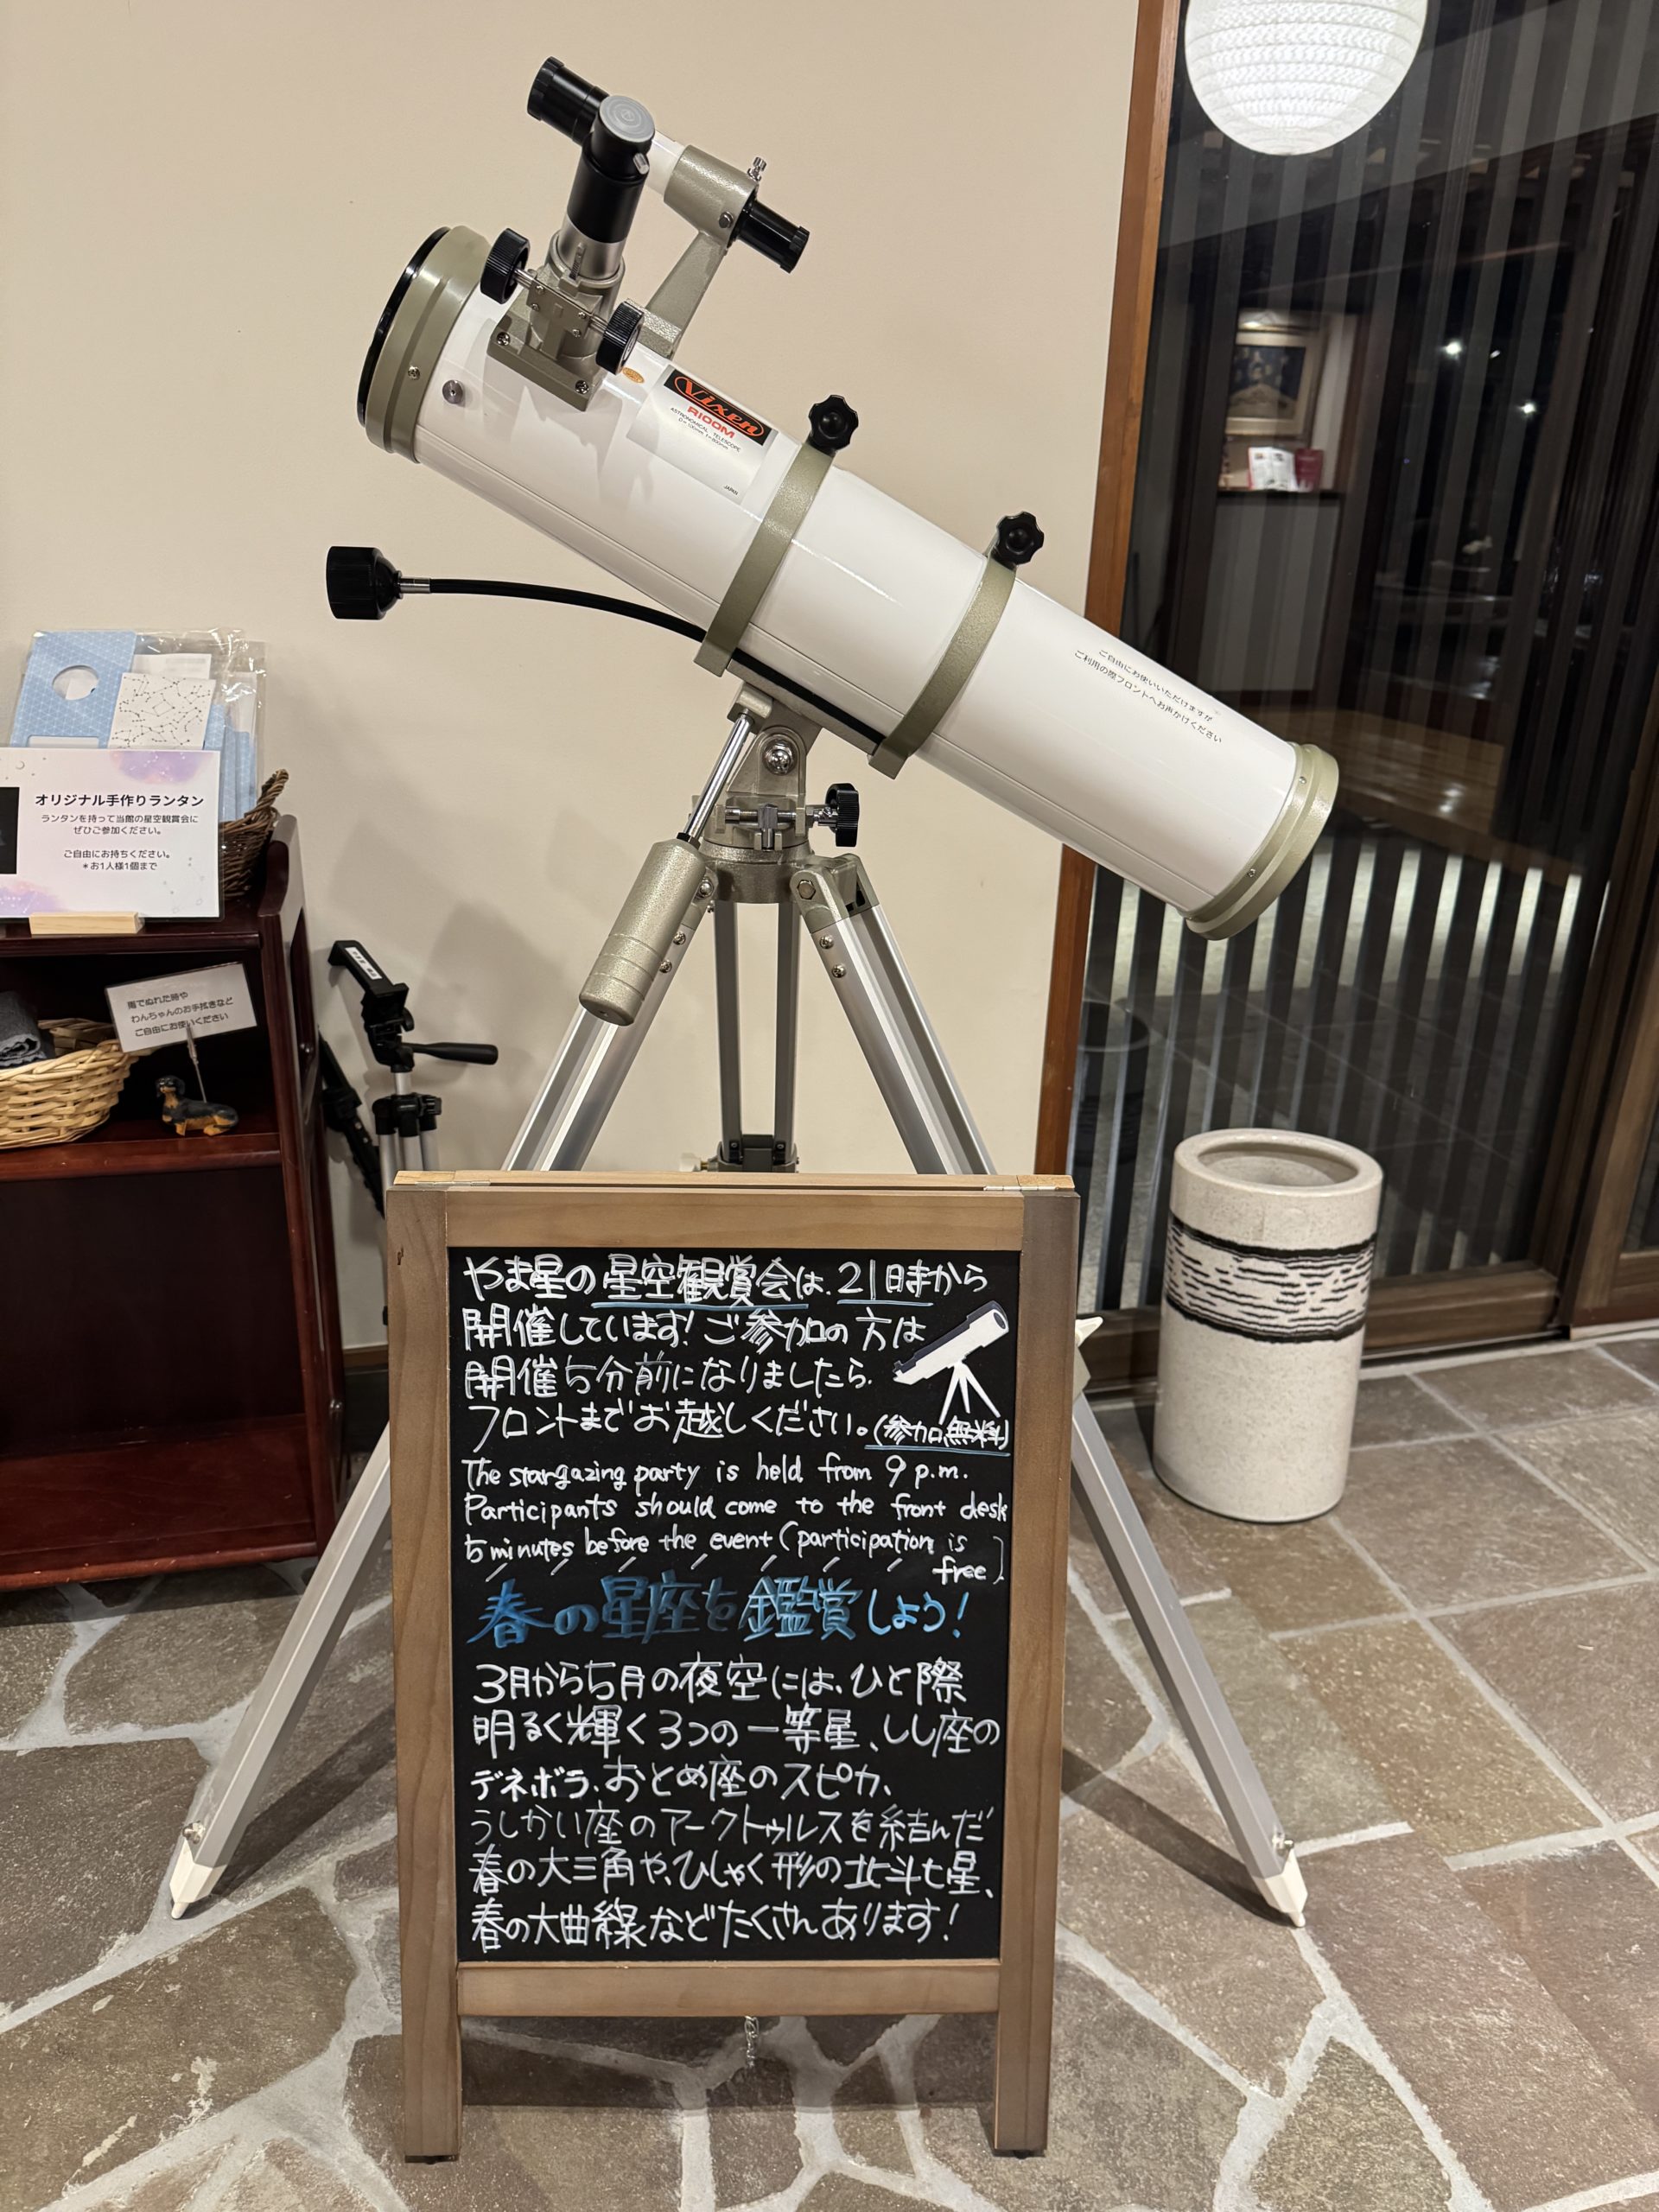 Vixen
R100M
ASTRONOMICAL TELESCOPE
JAPAN
ご自由にお使いいただけますが
ご利用の際フロントへお声がけください
オリジナル手作りランタン
ランタンを持って当館の星空観賞会に
ぜひご参加ください。
ご自由にお持ちください。
＊お1人様1個まで
雨でぬれた時や
わんちゃんのお手拭きなど
ご自由にお使いください
やま星の星空観賞会は、21時から
開催しています!ご参加の方は
開催5分前になりましたら、
フロントまでお越しください。(参加無料)
The stargazing party is held from 9 p.m.
Participants should come to the front desk
5 minutes before the event (participation is
free)
春の星座を鑑賞しよう!
3月から5月の夜空には、ひと際
明るく輝く3つの一等星、しし座の
デネボラ、おとめ座のスピカ、
うしかい座のアークトゥルスを結んだ
春の大三角や、ひしゃく形の北斗七星、
春の大曲線などたくさんあります!